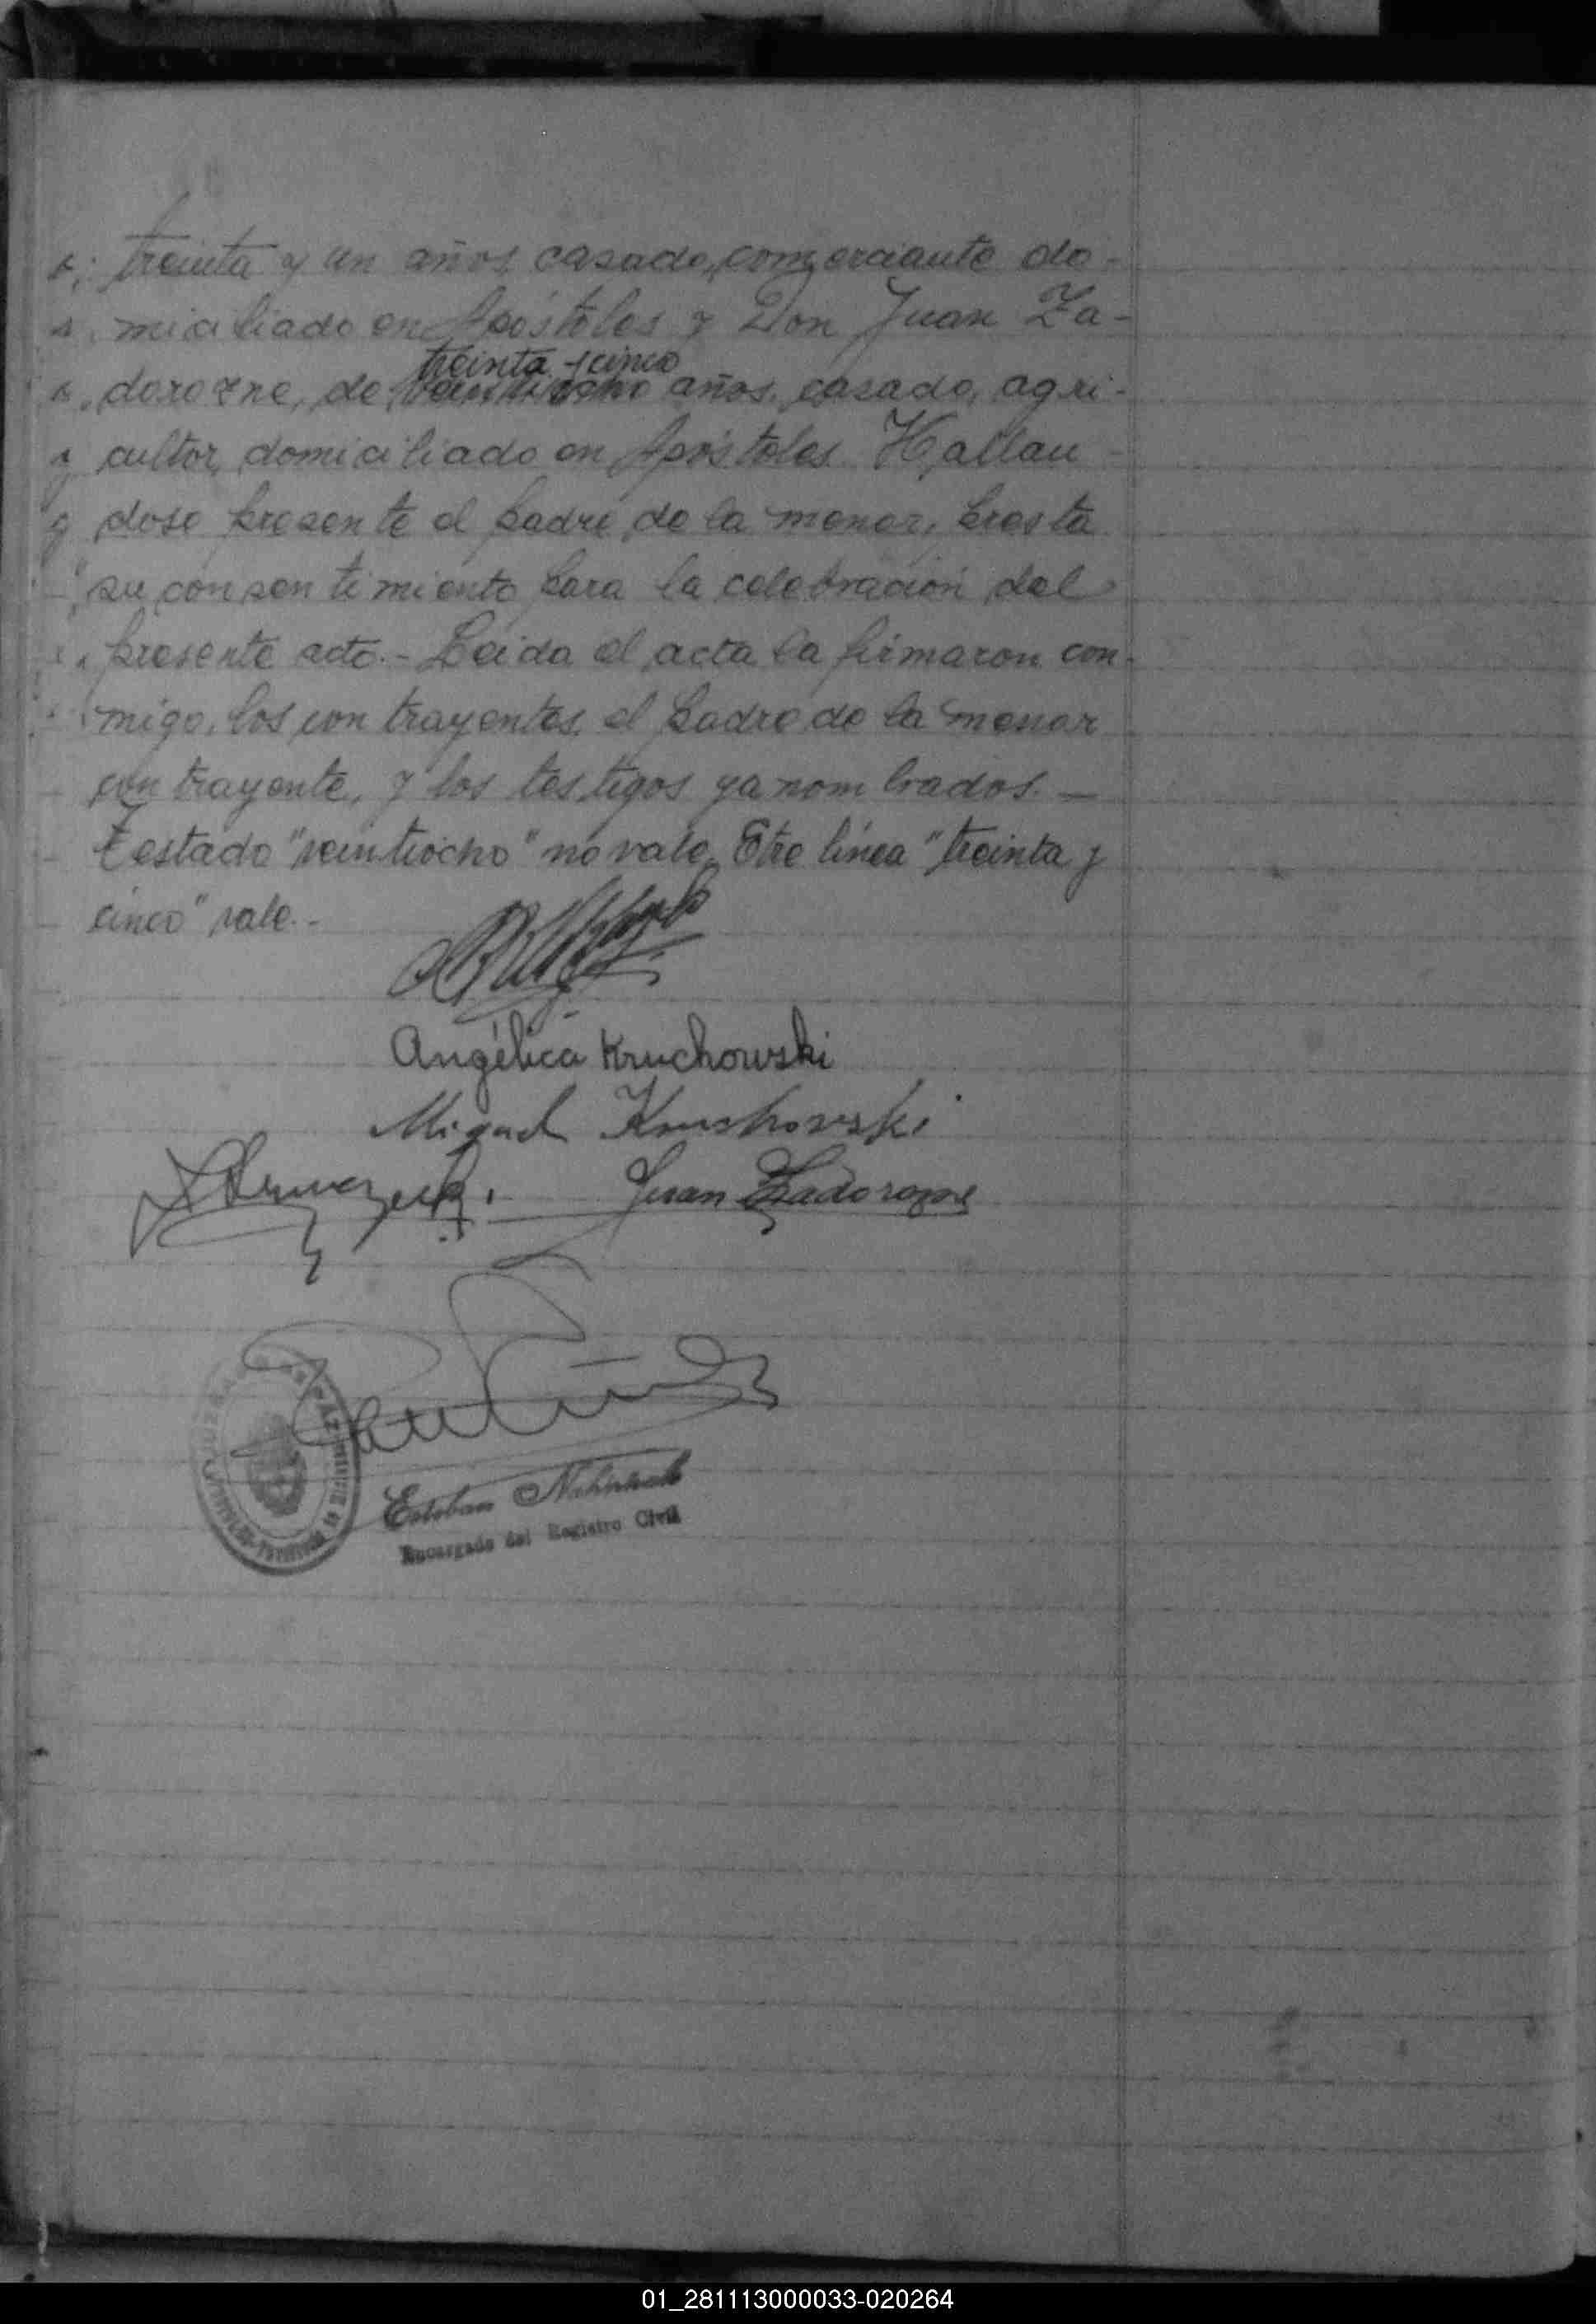 treinta y un años, casado, comerciante do-
miciliado en Apóstoles y Don Juan Za-
treinta y cinco
dorozne, de veintiocho años, casado, agri-
cultor, domiciliado en Apóstoles. Hallan-
dose presente el padre de la menor, presta
su consentimiento para la celebración del
presente acto.- Leida el acta la firmaron con-
migo, los contrayentes, el padre de la menor
contrayente, y los testigos ya nombrados. —
Testado "veintiocho" no vale. Etre linea "treinta y
cinco" vale.-
Angélica Kruchowski
Miguel Kruchowski
Juan Zadorozne
Esteban
Encargado del Registro Civil
01_281113000033-020264